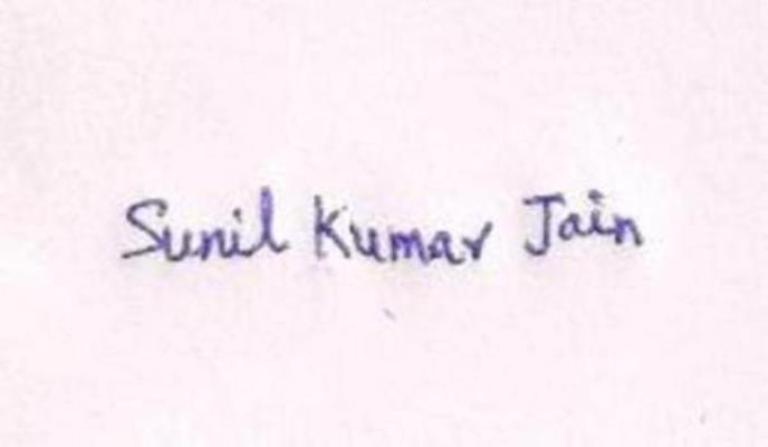 Sunil Kumar Jain